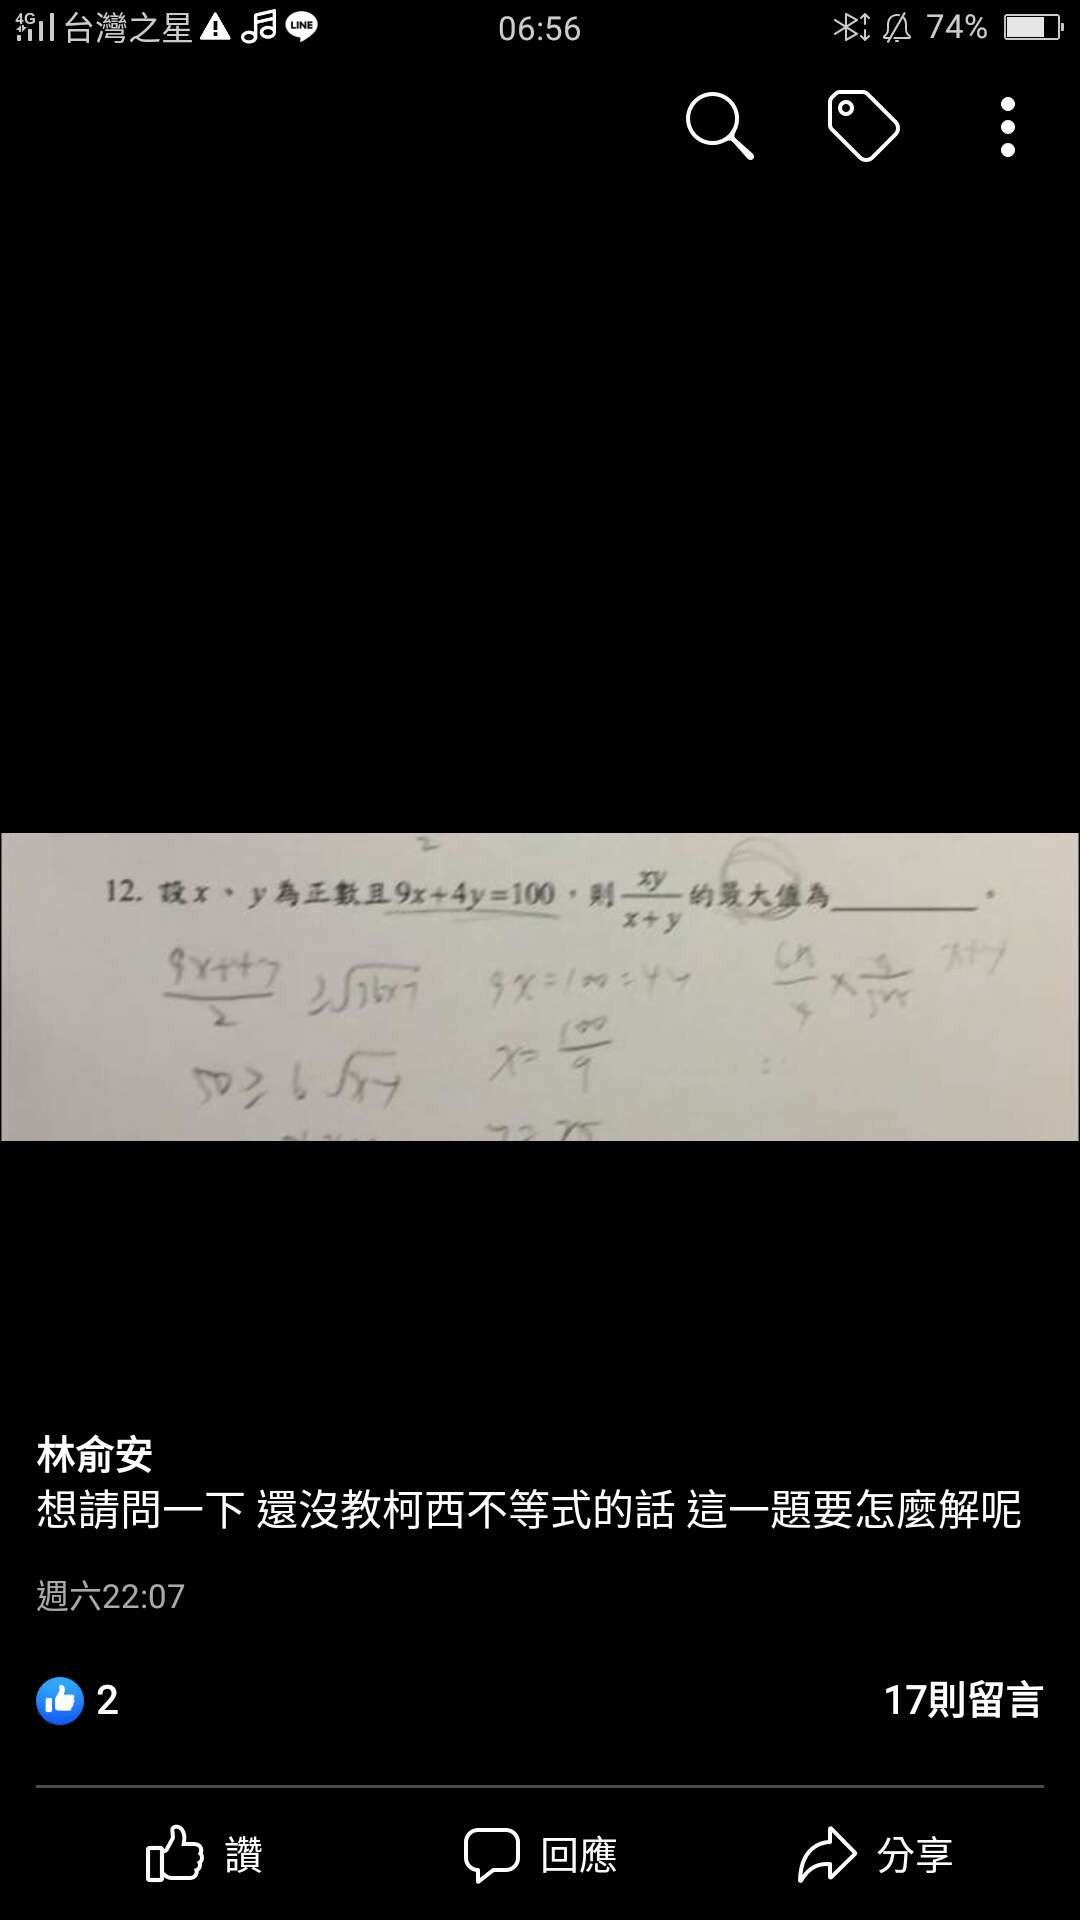 4G 台灣之星 LINE 06:56 74%
2
12. 設 x、y 為正數且 9x+4y=100,則 xy/x+y 的最大值為________。
9x+4y/2 ≥ √36xy 9x=100=4y x+y
50 ≥ 6√xy x= 100/9
林俞安
想請問一下 還沒教柯西不等式的話 這一題要怎麼解呢
週六22:07
2 17則留言
讚 回應 分享